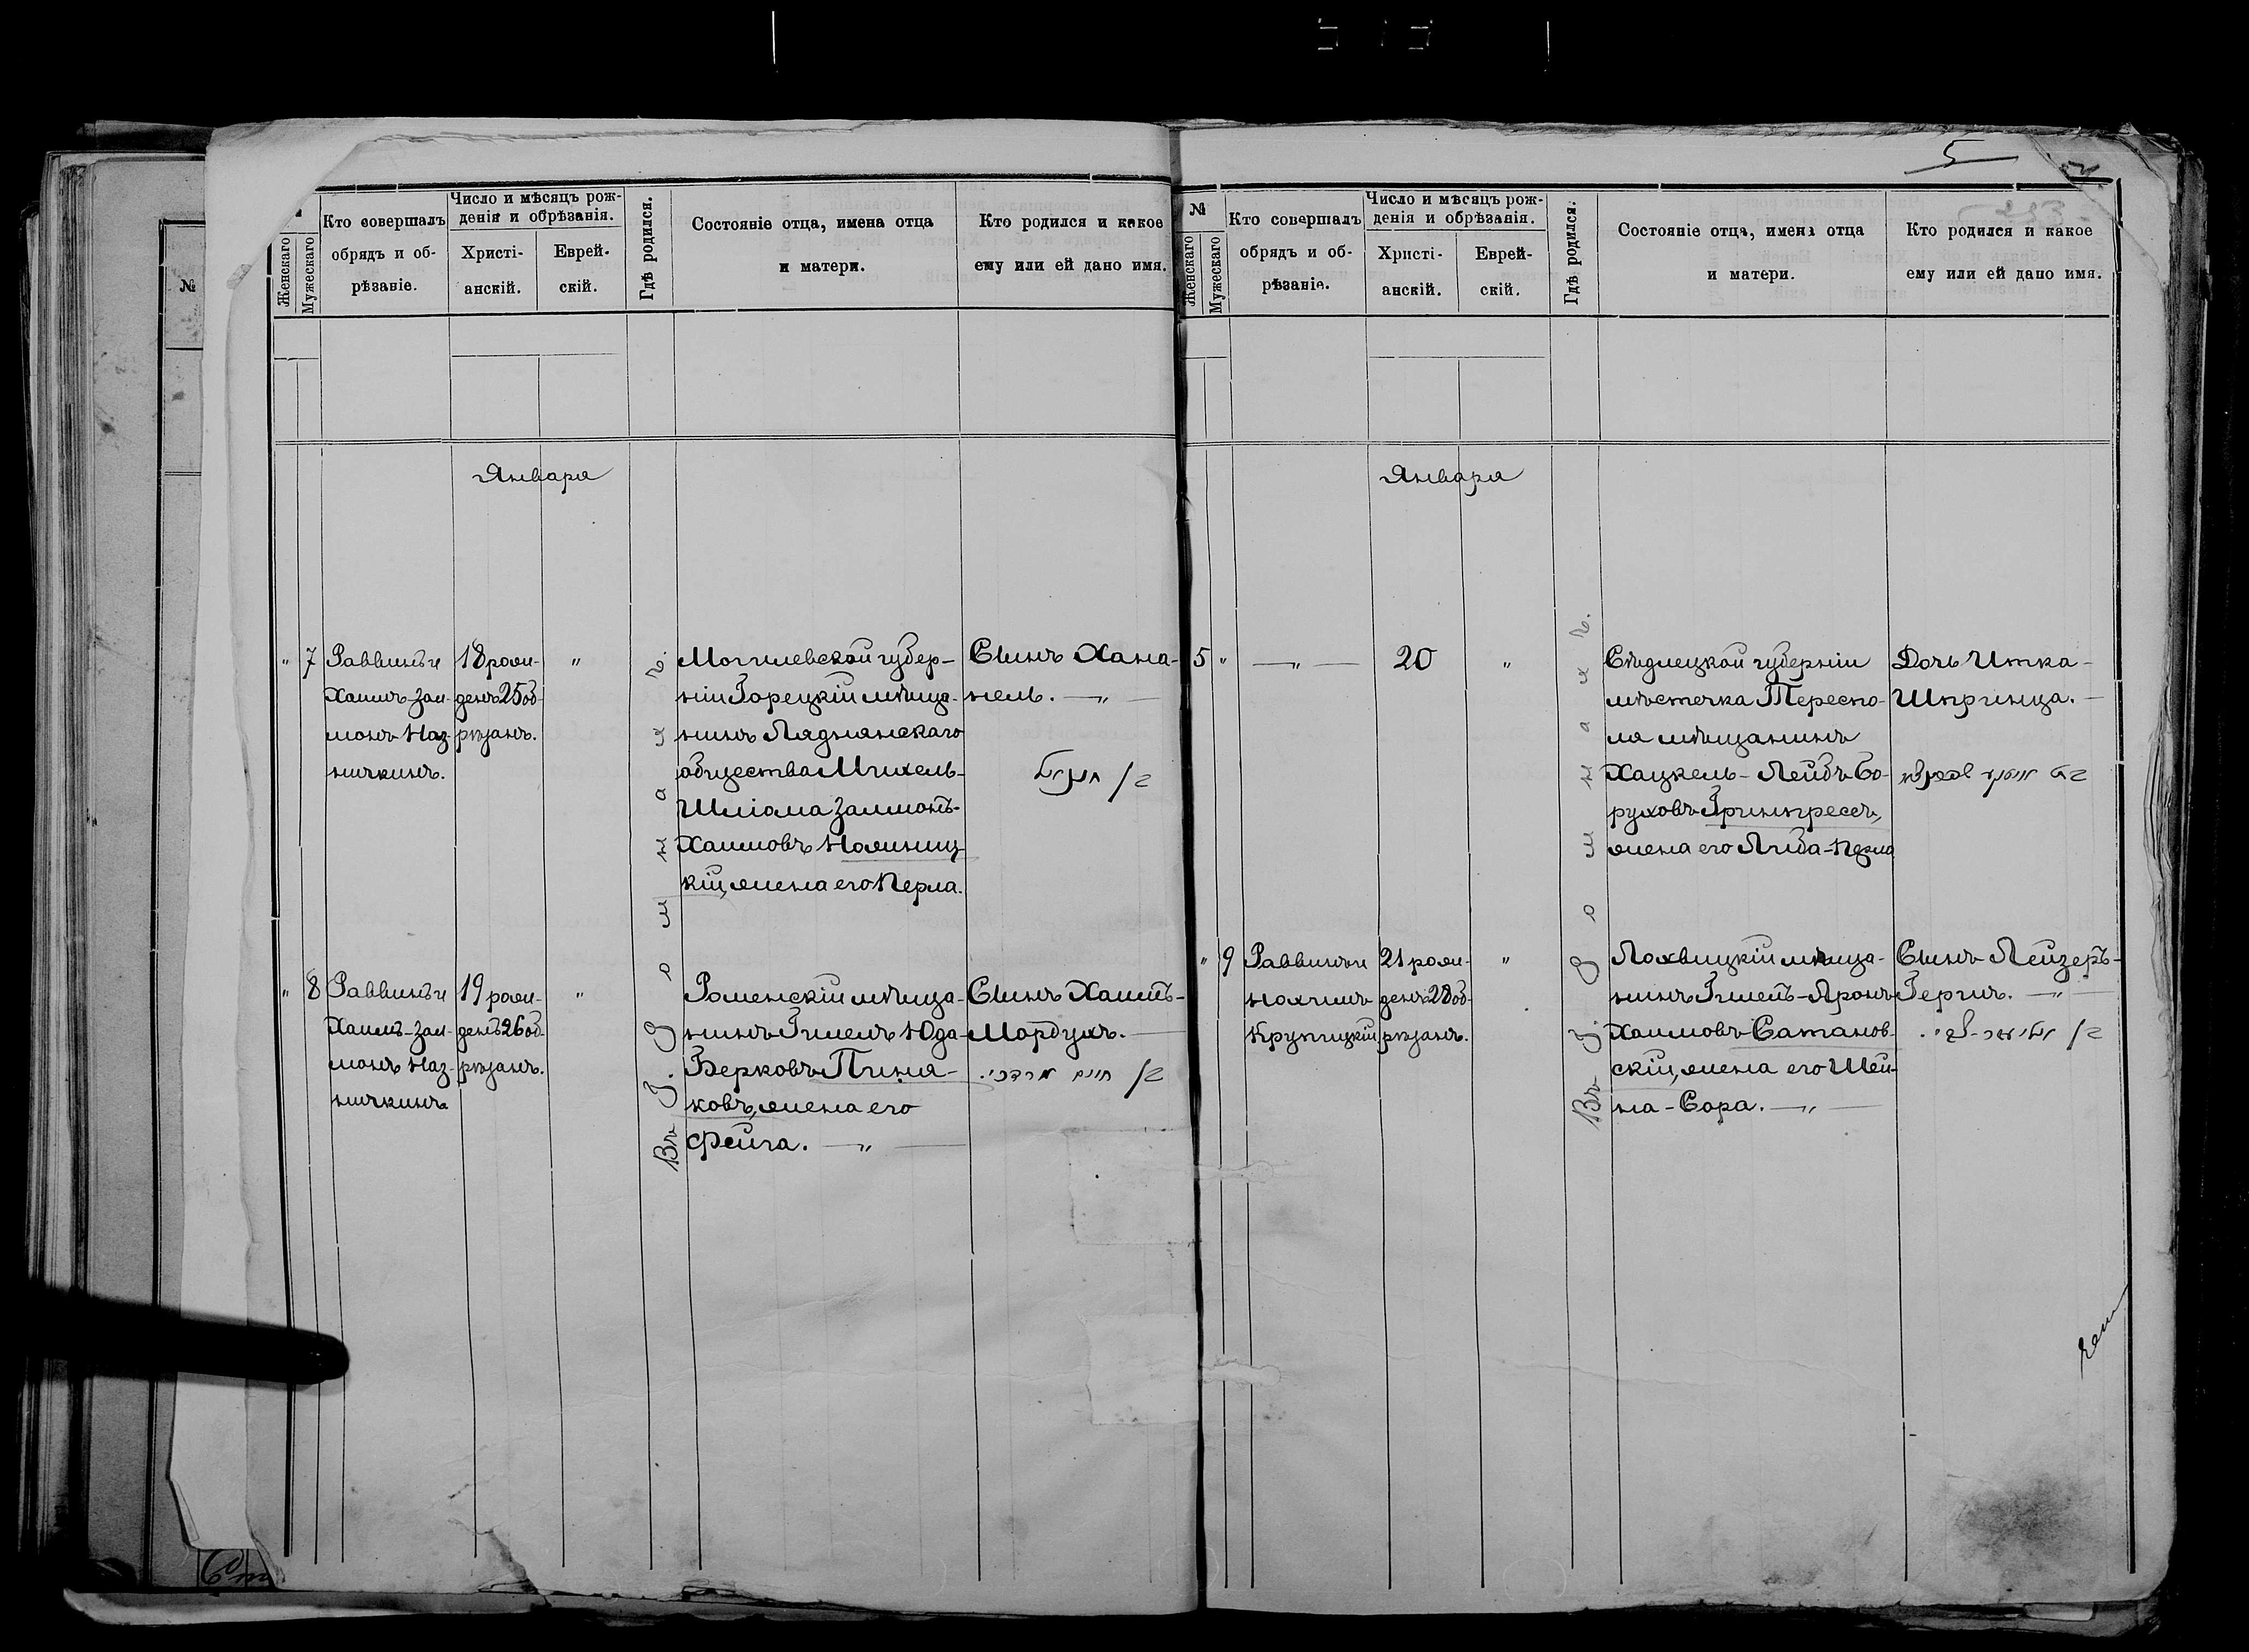 5
№
Женскаго
Мужескаго
Кто совершалъ
обрядъ и об-
рѣзаніе.
Число и мѣсяцъ рож-
денія и обрѣзанія.
Христі-
анскій.
Еврей-
скій.
Гдѣ родился.
Состояніе отца, имена отца
и матери.
Кто родился и какое
ему или ей дано имя.
Января
" 7
Раввинъ и
Хаимъ-Зал-
монъ Наз-
ничкинъ.
18 рож-
денъ 25 об-
рѣзанъ.
"
Могилевской губер-
ніи Горецкій мѣща-
нинъ Ляднянскаго
общества Михель-
Шліома Залмонъ-
Хаимовъ
кій, жена его Перла.
Сынъ Хана-
нель. — " —
" 8
Раввинъ и
Хаимъ-Зал-
монъ Наз-
ничкинъ
19 рож-
денъ 26 об-
рѣзанъ.
"
Роменскій мѣща-
нинъ Гимелъ Юда-
Берковъ Пиня-
ковъ, жена его
Фейга. — " —
Сынъ Хаимъ-
Мордухъ. —
חיים מרדכי.
Въ г. Ромнахъ.
№
Женскаго
Мужескаго
Кто совершалъ
обрядъ и об-
рѣзаніе.
Число и мѣсяцъ рож-
денія и обрѣзанія.
Христі-
анскій.
Еврей-
скій.
Гдѣ родился.
Состояніе отца, имена отца
и матери.
Кто родился и какое
ему или ей дано имя.
Января
5 "
— " —
20
"
Сѣдлецкой губерніи
мѣстечка Тереспо-
ля мѣщанинъ
Хацкель-Лейбъ Бо-
руховъ Гринпресъ,
жена его Либа-Перла
Дочь Итка-
Шпринца. —
" 9
Раввинъ и
Нохимъ
Крупицкій
21 рож-
денъ 28 об-
рѣзанъ.
"
Лохвицкій мѣща-
нинъ Гимелъ-Аронъ
Хаимовъ Сатанов-
скій, жена его Шей-
на-Сора. — " —
Сынъ Лейзеръ-
Гершъ. — " —
Въ г. Ромнахъ.